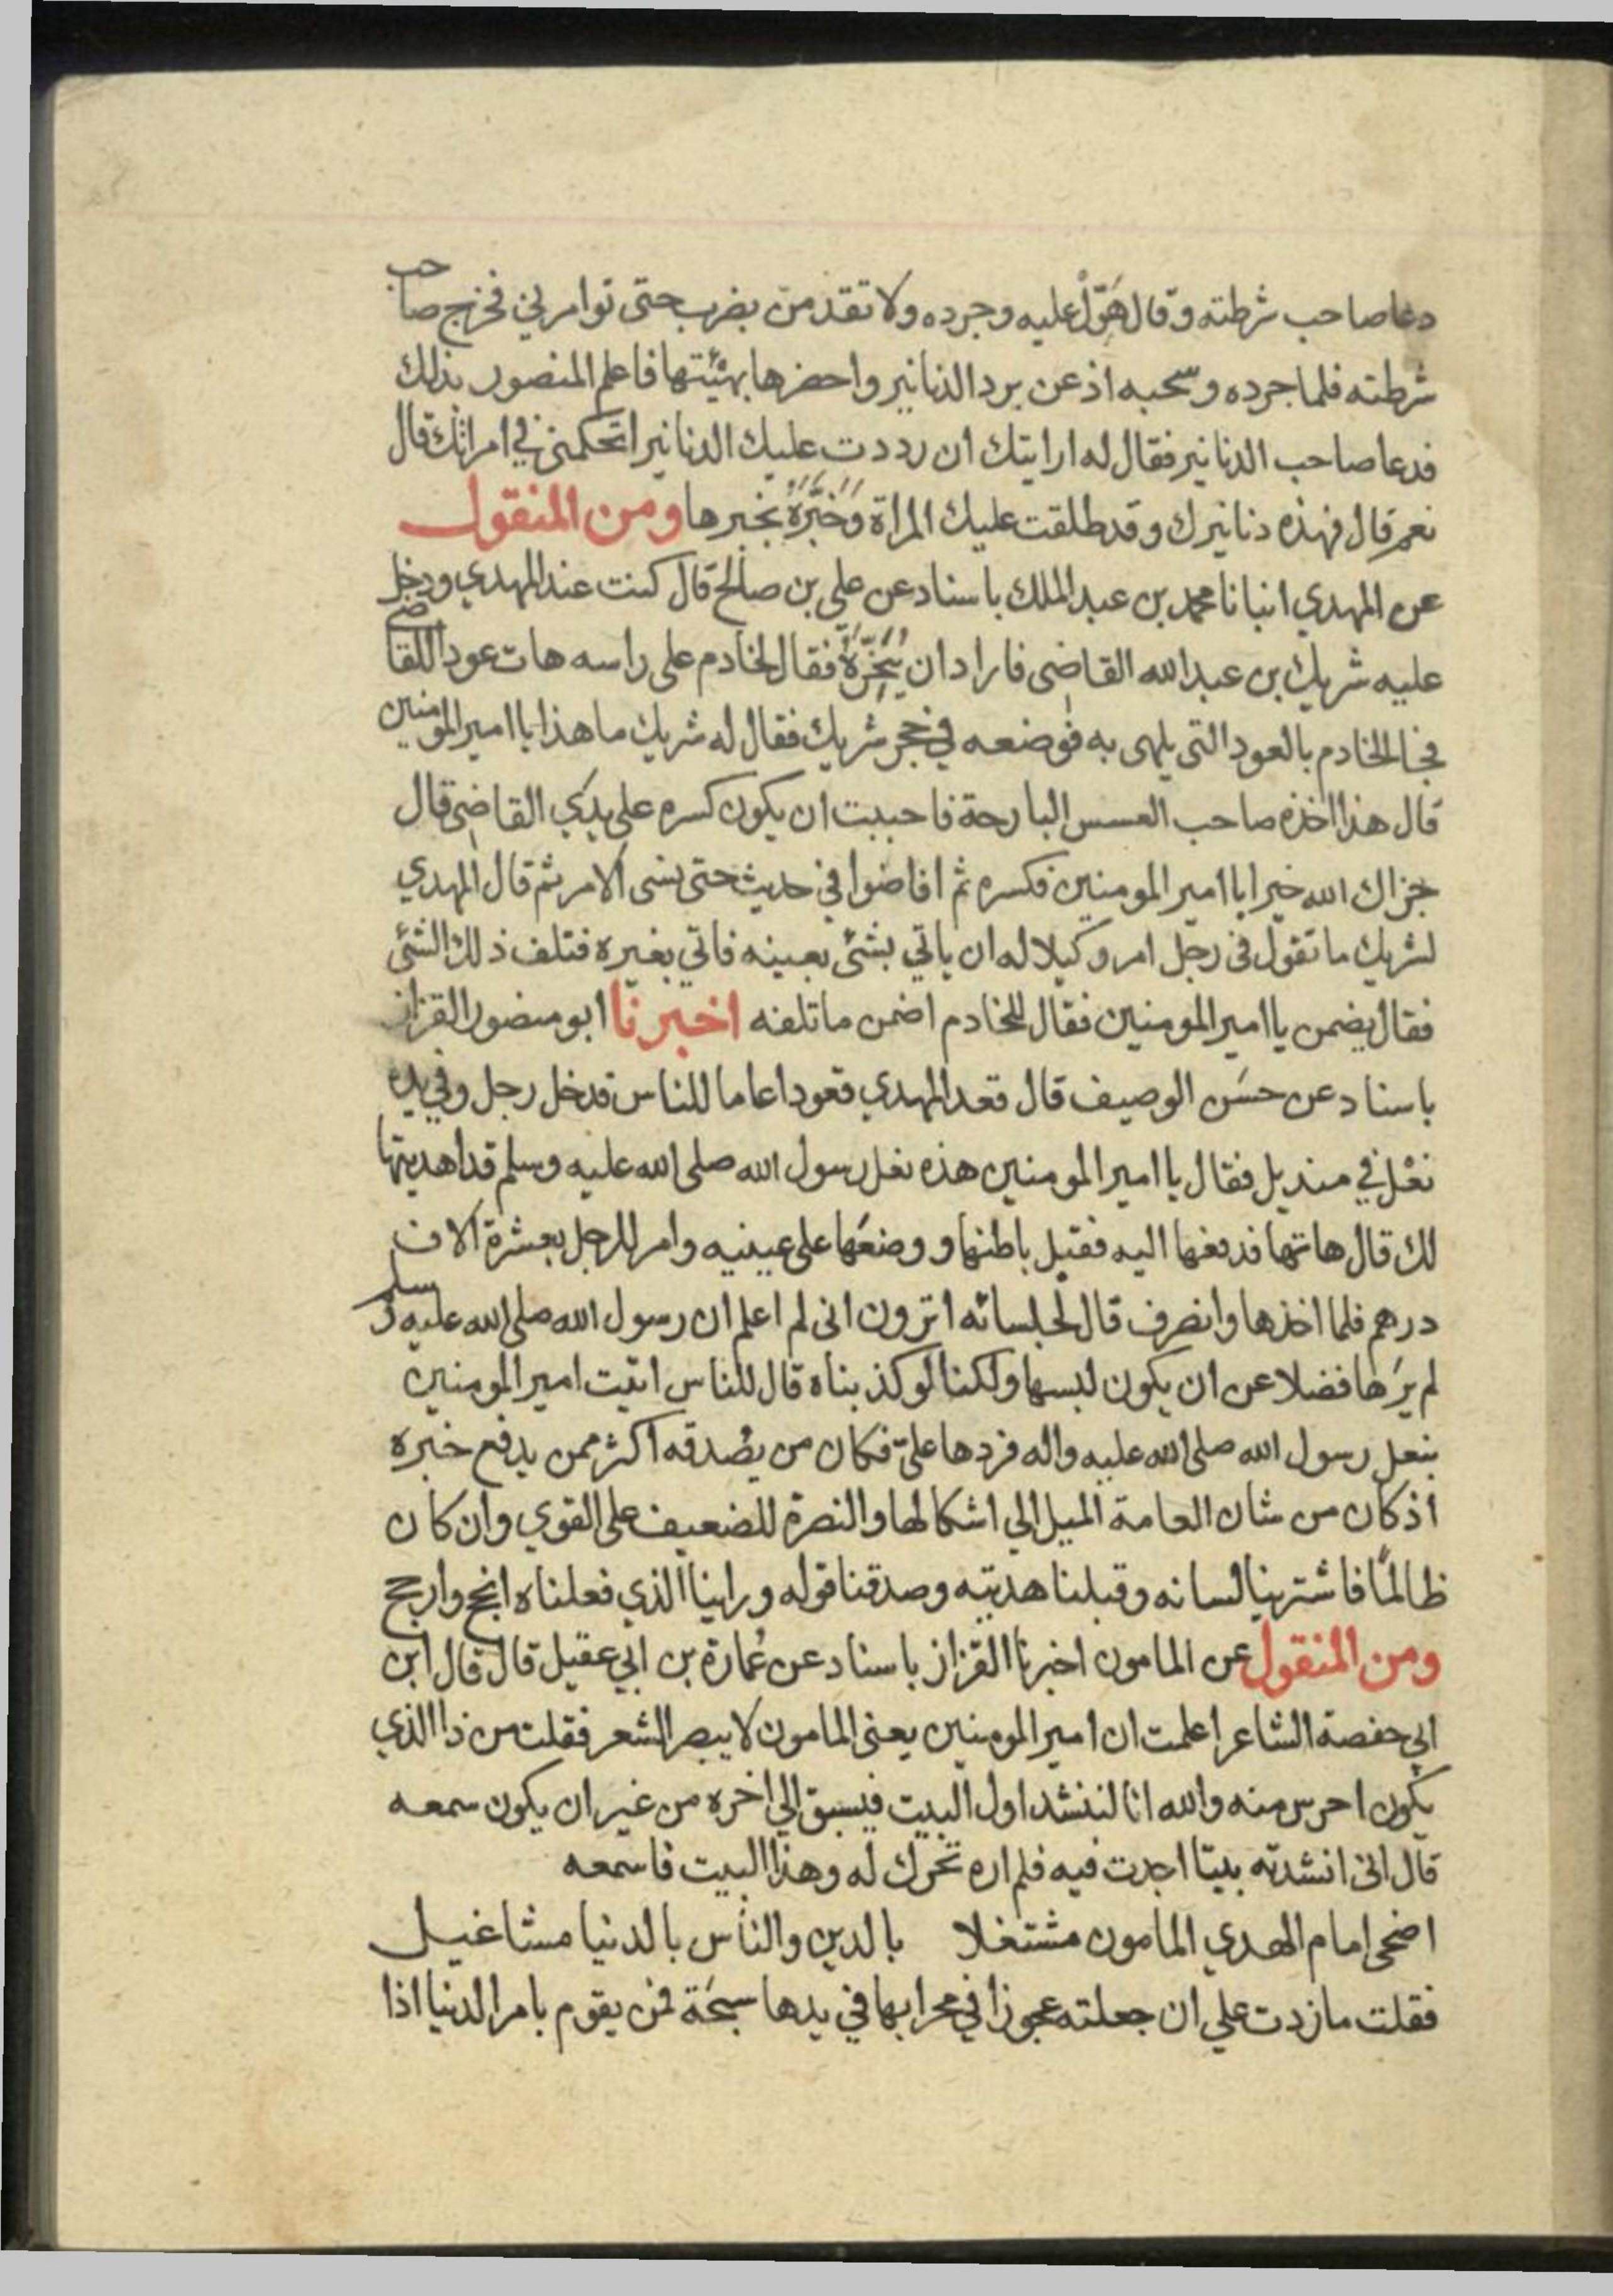 دعا صاحب شرطته وقال هَوّلْ عليه وجرده ولا تقدمن بضرب حتى توامرني فخرج صاحب
شرطته فلما جرده وسحبه اذعن برد الدنانير واحضرها بهئيتها فاعلم المنصور بذلك
فدعا صاحب الدنانير فقال له ارايتك ان رددت عليك الدنانير اتحكمني في امراتك قال
نعم قال فهذه دنانيرك وقد طلقت عليك المراة وَخَبَّرَهُ بخبرها ومن المنقول
عن المهدي انبانا محمد بن عبد الملك باسناد عن علي بن صالح قال كنت عند المهدي ودخل
عليه شريك بن عبد الله القاضي فاراد ان يُبَخِّرَهُ فقال لخادم على راسه هات عودا للقاضي
فجا الخادم بالعود التي يلهى به فوضعه في حجر شريك فقال له شريك ما هذا يا امير المومنين
قال هذا اخذه صاحب العسس البارحة فاحببت ان يكون كسره على يدَي القاضي قال
جزاك الله خيرا يا امير المومنين فكسره ثم افاضوا في حديث حتى نسى الامر ثم قال المهدي
لشريك ما تقول في رجل امر وكيلا له ان ياتي بشئ بعينه فاتي بغيره فتلف ذلك الشئ
فقال يضمن يا امير المومنين فقال للخادم اضمن ما تلفه اخبرنا ابو منصور القزاز
باسناد عن حسَن الوصيف قال قعد المهدي قعودا عاما للناس فدخل رجل وفي يده
نعْل في منديل فقال يا امير المومنين هذه نعل رسول الله صلى الله عليه وسلم قد اهديتها
لك قال هاتها فدفعها اليه فقبل باطنها و وضعَها على عينيه وامر للرجل بعشرة آلاف
درهم فلما اخذها وانصرف قال لجلسائه اترون اني لم اعلم ان رسول الله صلى الله عليه وسلم
لم يَرَها فضلا عن ان يكون لبسها ولكنا لو كذبناه قال للناس اتيت امير المومنين
بنعل رسول الله صلى الله عليه واله فردها عليّ فكان من يصُدقه اكثر ممن يدفع خبره
اذ كان من شان العامة الميل الي اشكالها والنصرة للضعيف على القوي وان كان
ظالمًا فاشترينا لسانه وقبلنا هديته وصدقنا قوله وراينا الذي فعلناه انجح وارجح
ومن المنقول عن المامون اخبرنا القزاز باسناد عن عُمارة بن ابي عقيل قال قال ابن
ابي حفصة الشاعر اعلمت ان امير المومنين يعنى المامون لا يبصر الشعر فقلت من ذا الذي
يكون احرس منه والله انا لننشد اول البيت فيسبق الي اخره من غير ان يكون سمعه
قال اني انشدته بيتا اجدت فيه فلم اره تحرك له وهذا البيت فاسمعه
اضحى امام الهدي المامون مشتغلا بالدين والناس بالدنيا مشاغيل
فقلت ما زدت علي ان جعلته عجوزا في محرابها في يدها سبحَة فمن يقوم بامر الدنيا اذا